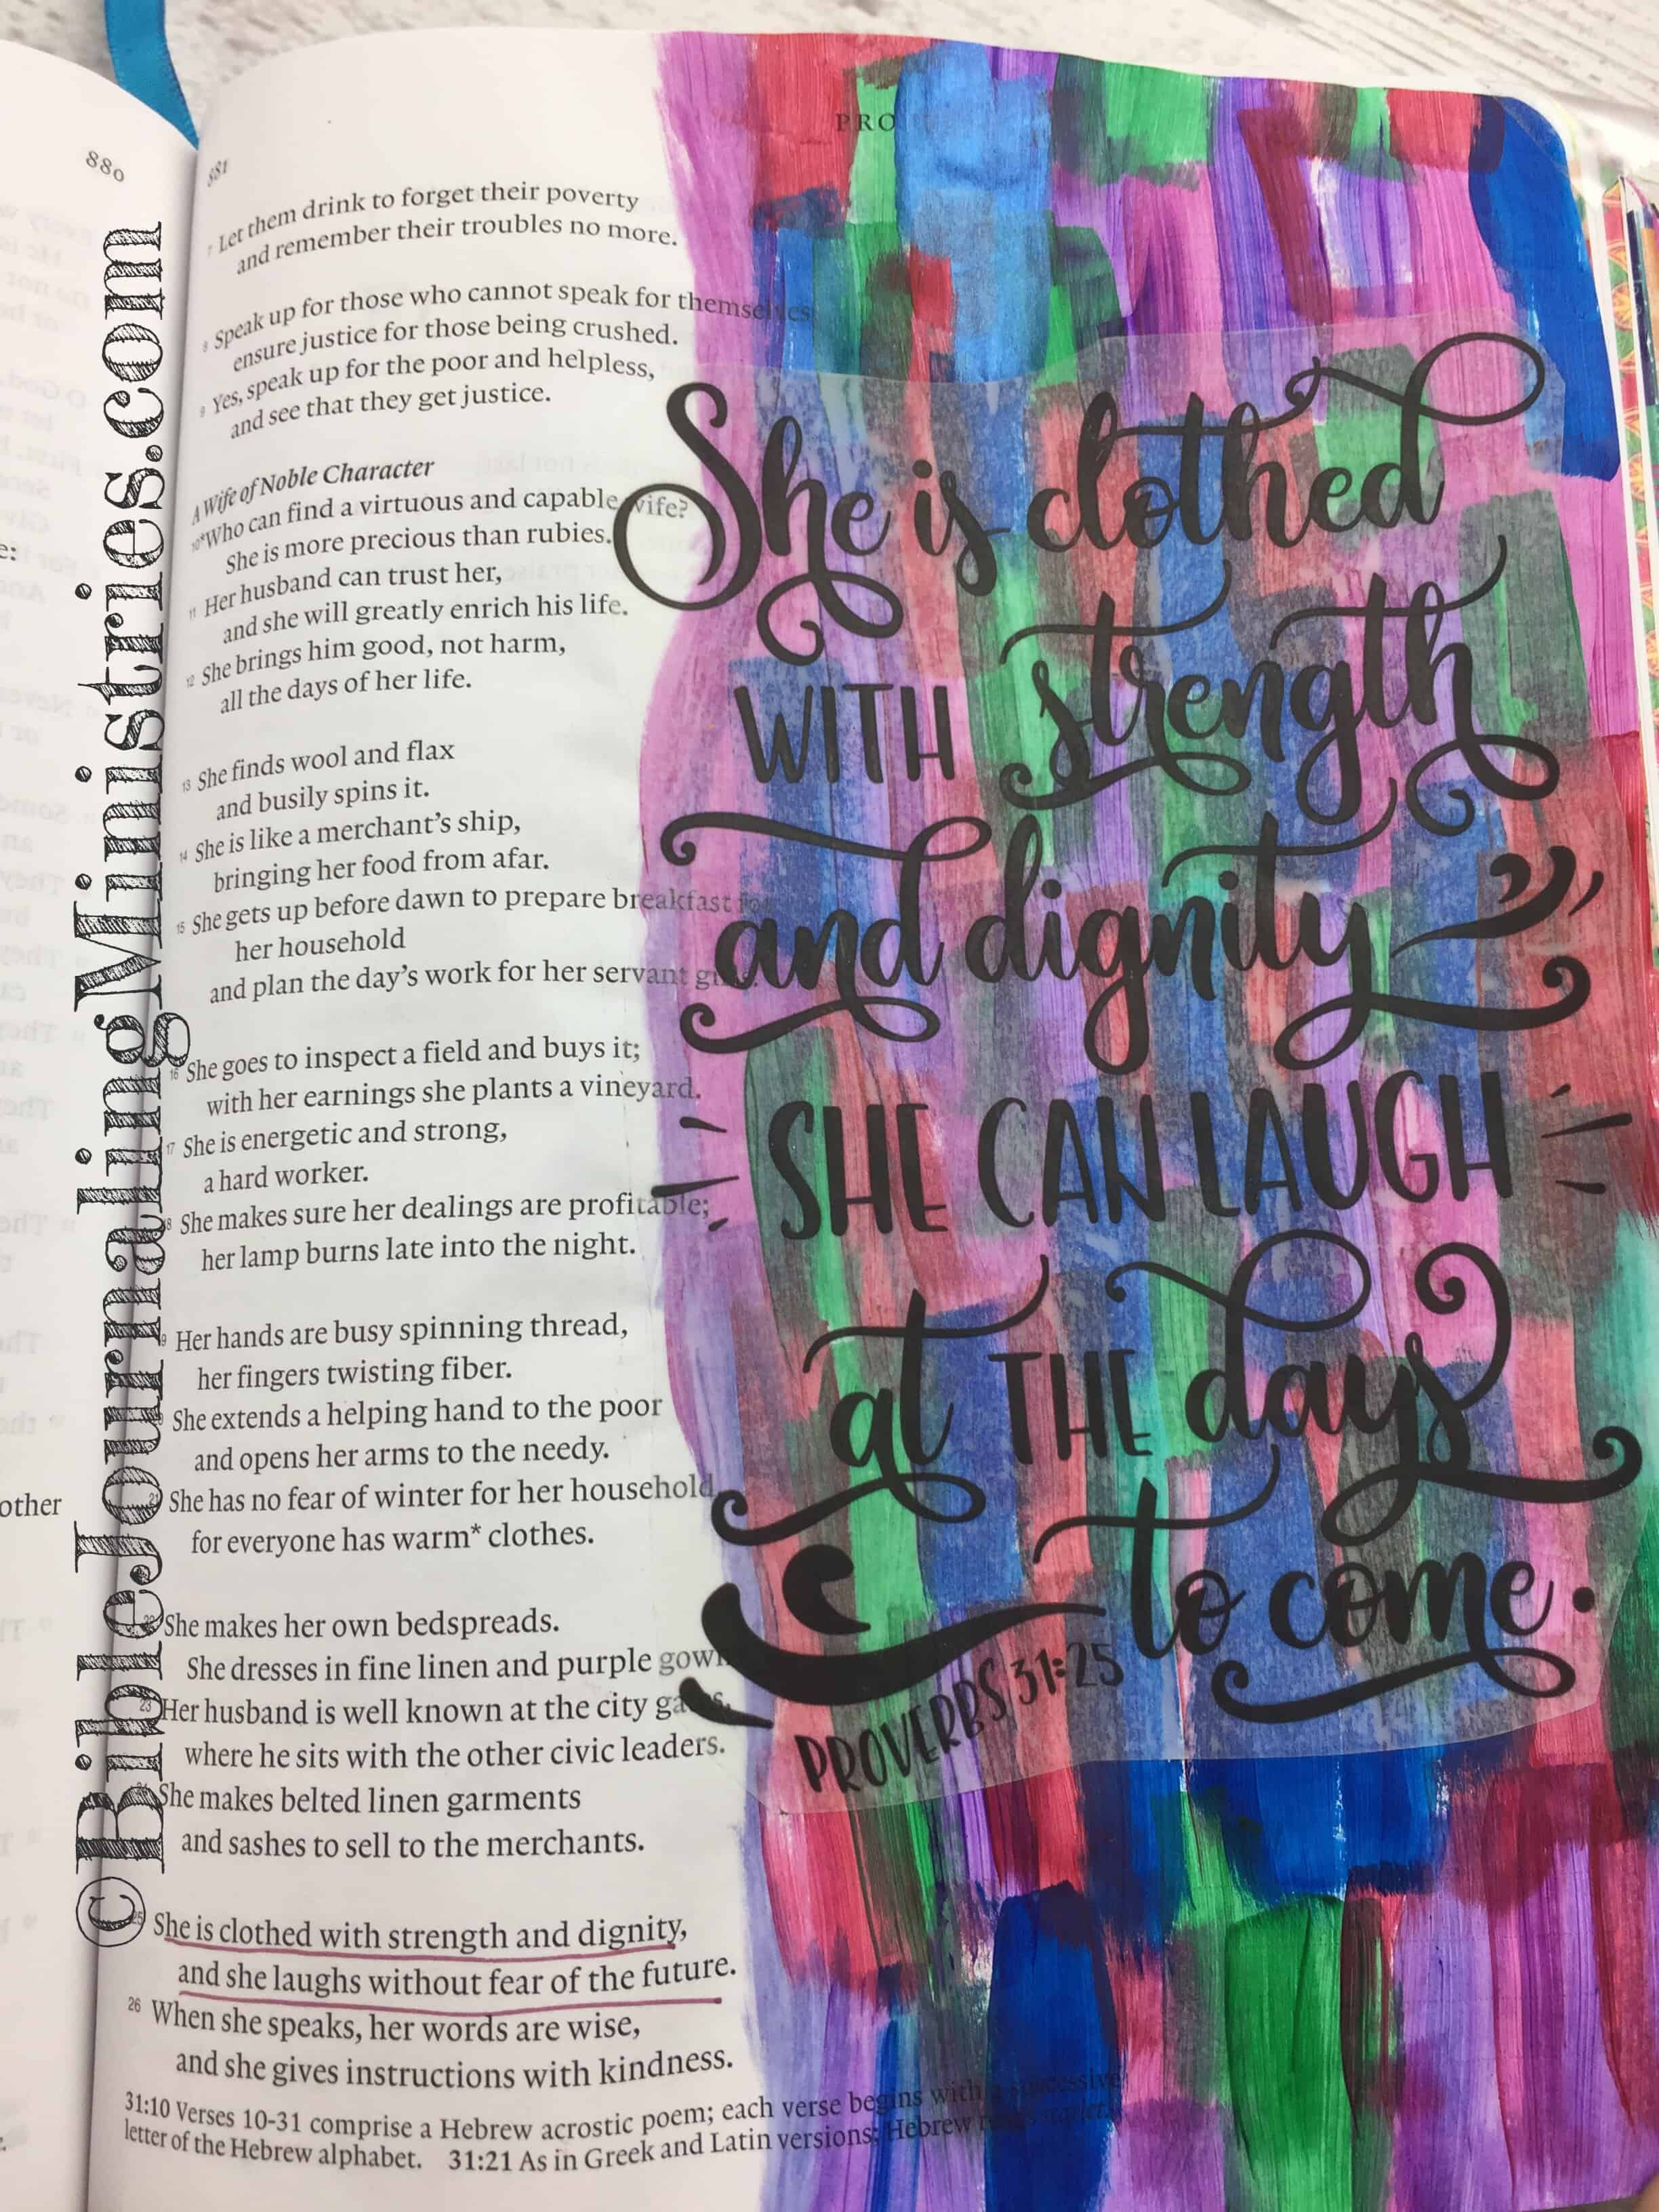 880
881
PRO
7 Let them drink to forget their poverty
and remember their troubles no more.
8 Speak up for those who cannot speak for themselves
ensure justice for those being crushed.
9 Yes, speak up for the poor and helpless,
and see that they get justice.
A Wife of Noble Character
10 *Who can find a virtuous and capable wife?
She is more precious than rubies.
11 Her husband can trust her,
and she will greatly enrich his life.
12 She brings him good, not harm,
all the days of her life.
13 She finds wool and flax
and busily spins it.
14 She is like a merchant's ship,
bringing her food from afar.
15 She gets up before dawn to prepare breakfast for
her household
and plan the day's work for her servant
16 She goes to inspect a field and buys it;
with her earnings she plants a vineyard.
17 She is energetic and strong,
a hard worker.
18 She makes sure her dealings are profitable;
her lamp burns late into the night.
19 Her hands are busy spinning thread,
her fingers twisting fiber.
She extends a helping hand to the poor
and opens her arms to the needy.
21 She has no fear of winter for her household
for everyone has warm* clothes.
22 She makes her own bedspreads.
She dresses in fine linen and purple gown
23 Her husband is well known at the city gates,
where he sits with the other civic leaders.
24 She makes belted linen garments
and sashes to sell to the merchants.
25 She is clothed with strength and dignity,
and she laughs without fear of the future.
26 When she speaks, her words are wise,
and she gives instructions with kindness.
31:10 Verses 10-31 comprise a Hebrew acrostic poem; each verse begins with a successive
letter of the Hebrew alphabet. 31:21 As in Greek and Latin versions; Hebrew
She is clothed
WITH strength
and dignity
SHE CAN LAUGH
at THE days
to come.
PROVERBS 31:25
other
e:
©BibleJournalingMinistries.com